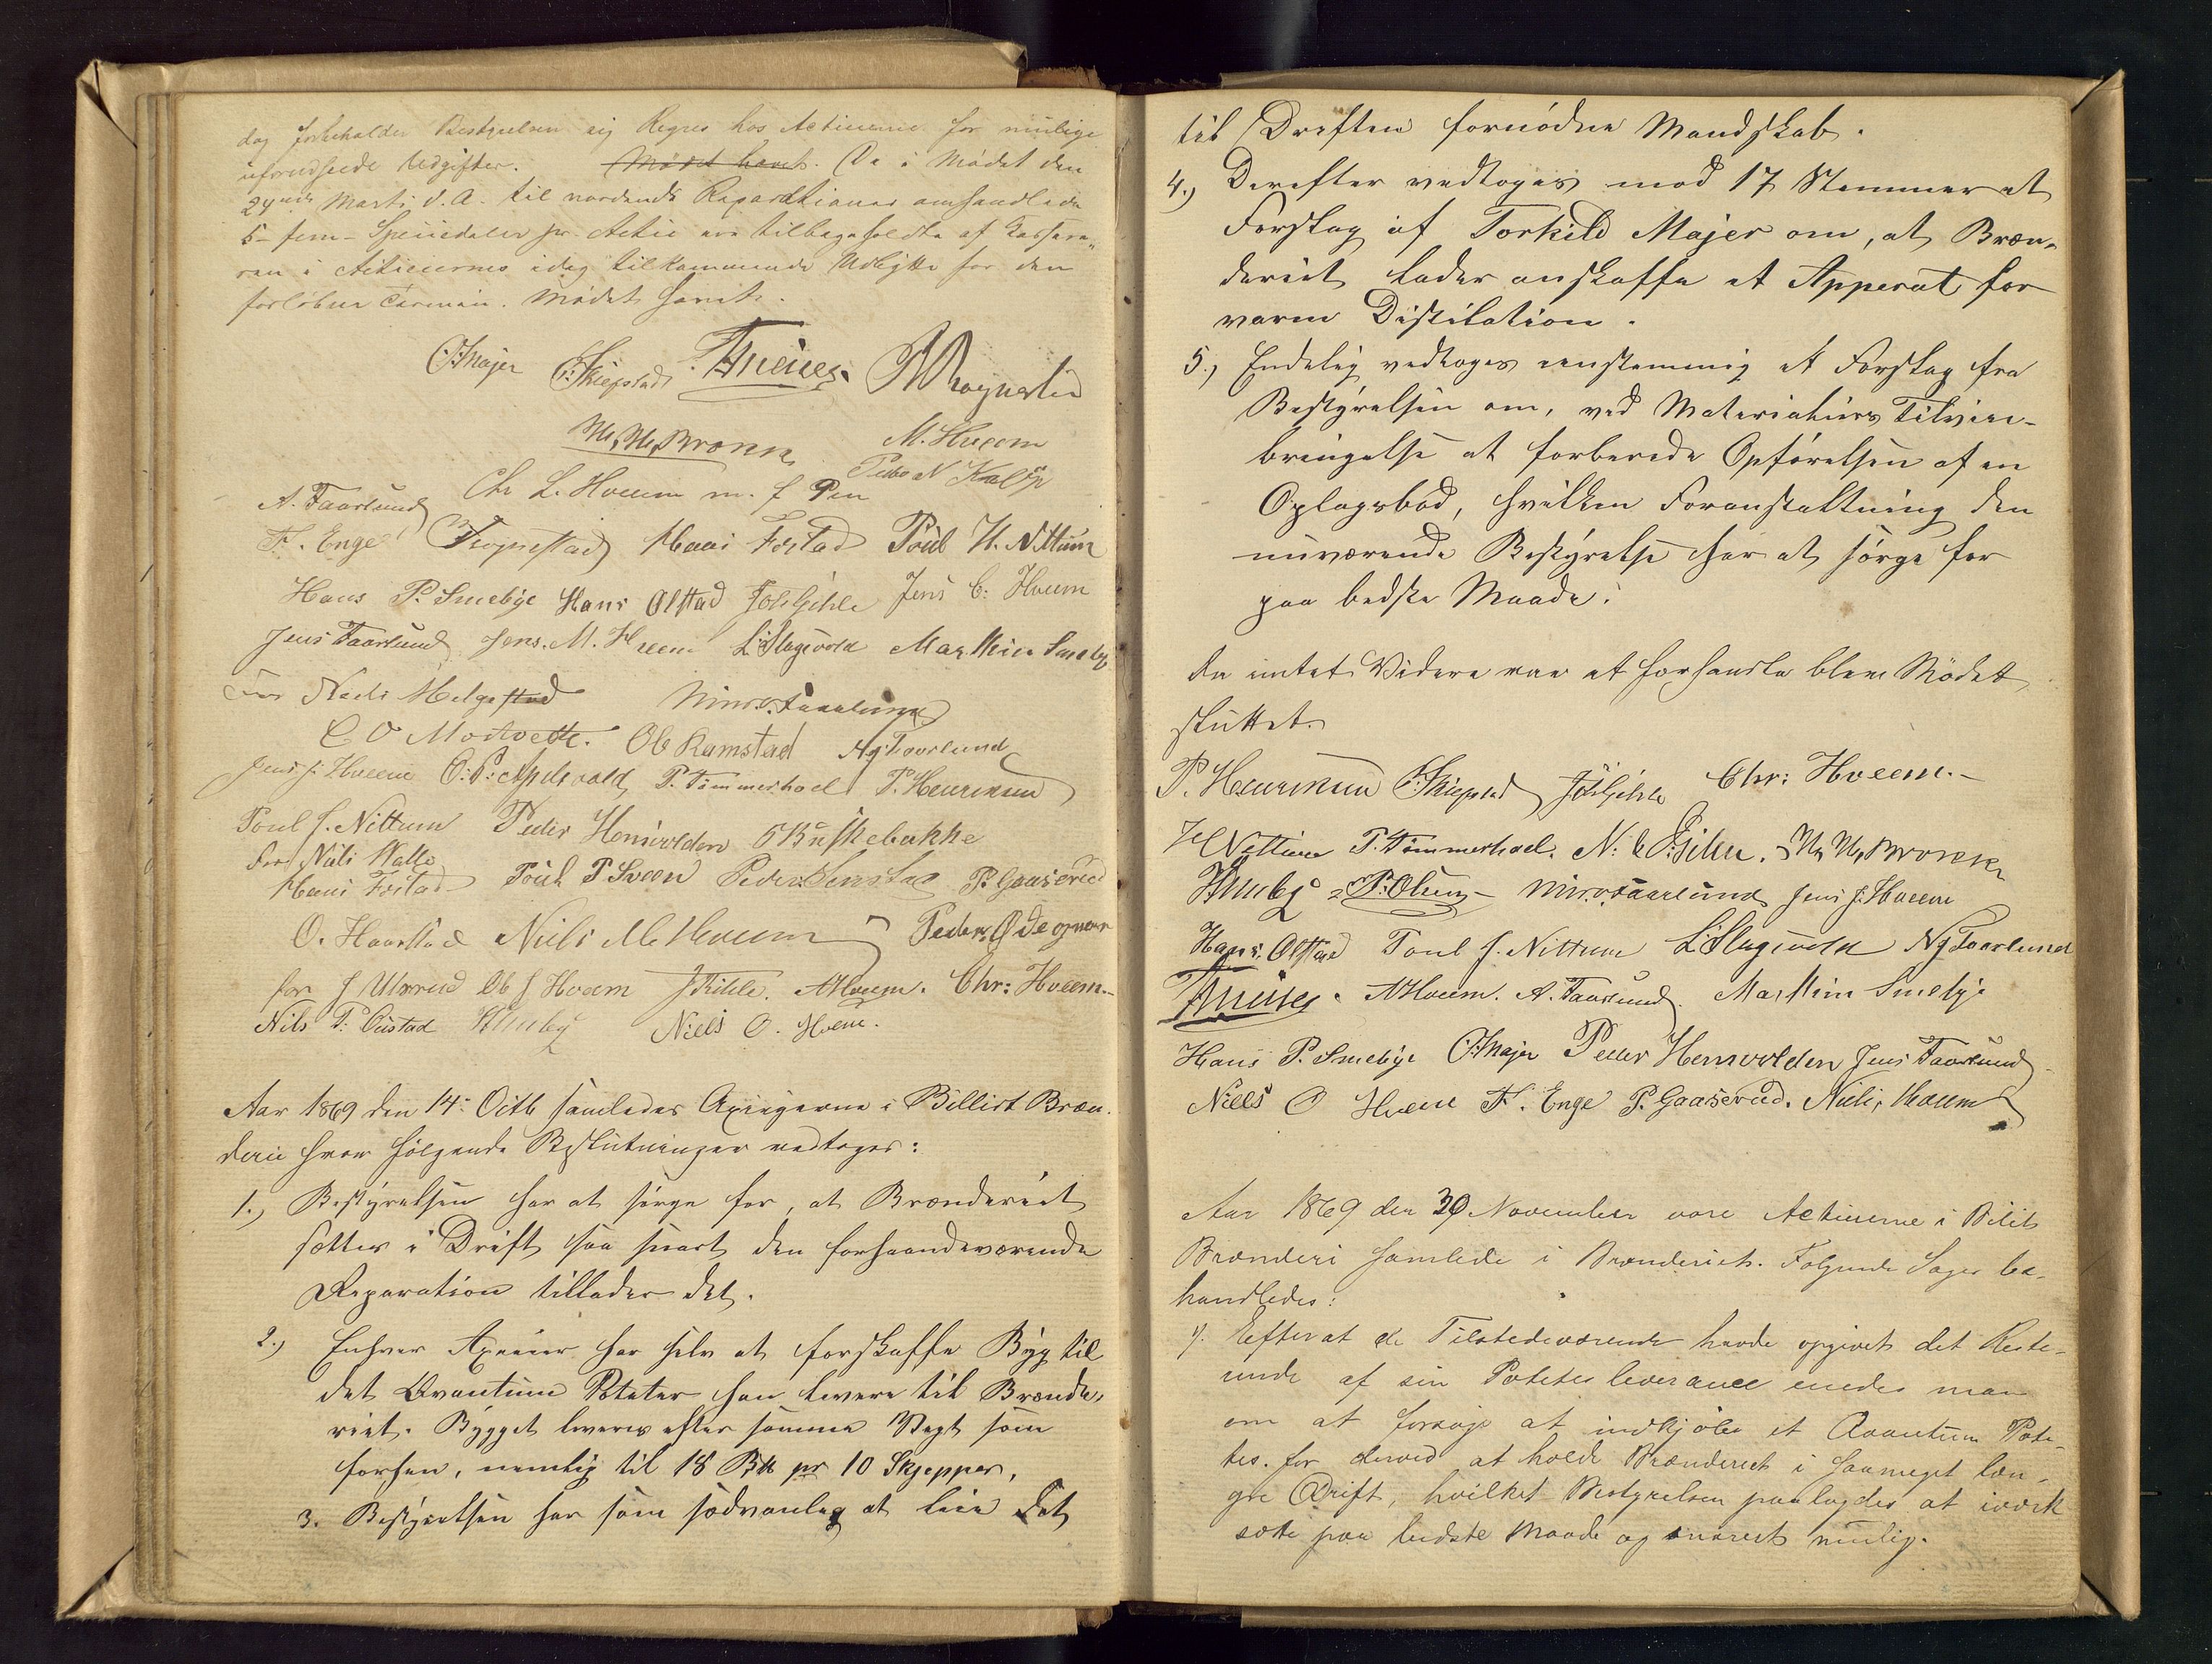 dog forbeholder Bestyrelsen sig Regres hos Actiuerne for mulige
uforudseede Udgifter. Mødet hævet. De i Mødet den
24nde Marts d. A. til vordende Reparationer omhandlede
5 – fem – Speciedaler pr. Actie ere tilbageholdte af Kassere-
ren i Actieiernes idag tilkommende Udbytte for den
forløbne Termin. Mødet hævet.
O. Majer Skiepstad
M. M. Brovnn M. Hveem
Chr L. Hveem m. f Pen Peder N
A. Faarlund
F. Enge Haai Fostad Poul H. Nittum
Hans P. Smebye Hans Olstad Joh Gihle Jens C. Hveem
Jens Faarlund Jens. M. Hveem L. Slagsvold Marthin Smeby
for Niels Melgestad
Ole Ramstad Ag Faarlund
Jens J. Hveem O. P. Apelsvold P. Tømmerhoel P. Henriksen
Poul J. Nittum Peder Hemvolden
for Niels Walle
Haai Fostad Poul P Sveen Peder P. Gaaserud
O. Haarstad Niels M. Hveem Peder Ødegaard
for J Ulsrud Ole J Hveem J Kihle. A Hveem. Chr: Hveem.
Nils P: Oustad Niels O. Hveem.
Aar 1869 den 14: Octb samledes Axieeierne i Billirt Bræn-
derie hvor følgende Beslutninger vedtoges:
1., Bestyrelsen har at sørge for, at Brænderiet
sættes i Drift saa snart den forhaandenværende
Reparation tillader det.
2.) Enhver Axieeier har selv at forskaffe Byg til
det Qvantum Poteter han levere til Brænde-
riet. Bygget leveres efter samme Vægt som
forhen, nemlig til 18 B℔ pr 10 Skjepper,
3. Bestyrelsen har som sædvanlig at leie det
til Driften fornødne Mandskab.
4.) Derefter vedtoges mod 17 Stemmer et
Forslag af Torkild Majer om, at Bræn-
deriet lader anskaffe et Apparat for
varm Distilation.
5.) Endelig vedtoges eenstemmig et Forslag fra
Bestyrelsen om, ved Materialiers Tilveie-
bringelse at forberede Opførelsen af en
Oplagsbod, hvilken Foranstaltning den
nuværende Bestyrelse har at sørge for
paa bedste Maade.
Da intet Videre var at forhandle blev Mødet
sluttet.
P. Henriksen Skiepstad Joh Gihle Chr: Hveem.
H Nittum P. Tømmerhoel. N. C. Gihle. M. M. Brovnn
Jens J. Hveem
Hans Olstad Poul J. Nittum L. Slagsvold Ag Faarlund
A Hveem. A. Faarlund. Marthin Smebye
Hans P. Smebye O. Majer Peder Hemvolden Jens Faarlund
Niels O Hveem F. Enge P. Gaaserud. Niels Hveem
Aar 1869 den 30 November vare Actieierne i Bilit
Brænderi samlede i Brænderiet. Følgende Sager be-
handledes:
1). Efterat de Tilstedeværende havde opgivet det Reste-
rende af sin Poteteleverance enedes man
om at forsøge at indkjøbe et Qvantum Pote-
tes for derved at holde Brænderiet i saameget læn-
gre Drift, hvilket Bestyrelsen paalagdes at iværk
sætte paa bedste Maade og snarest mulig.